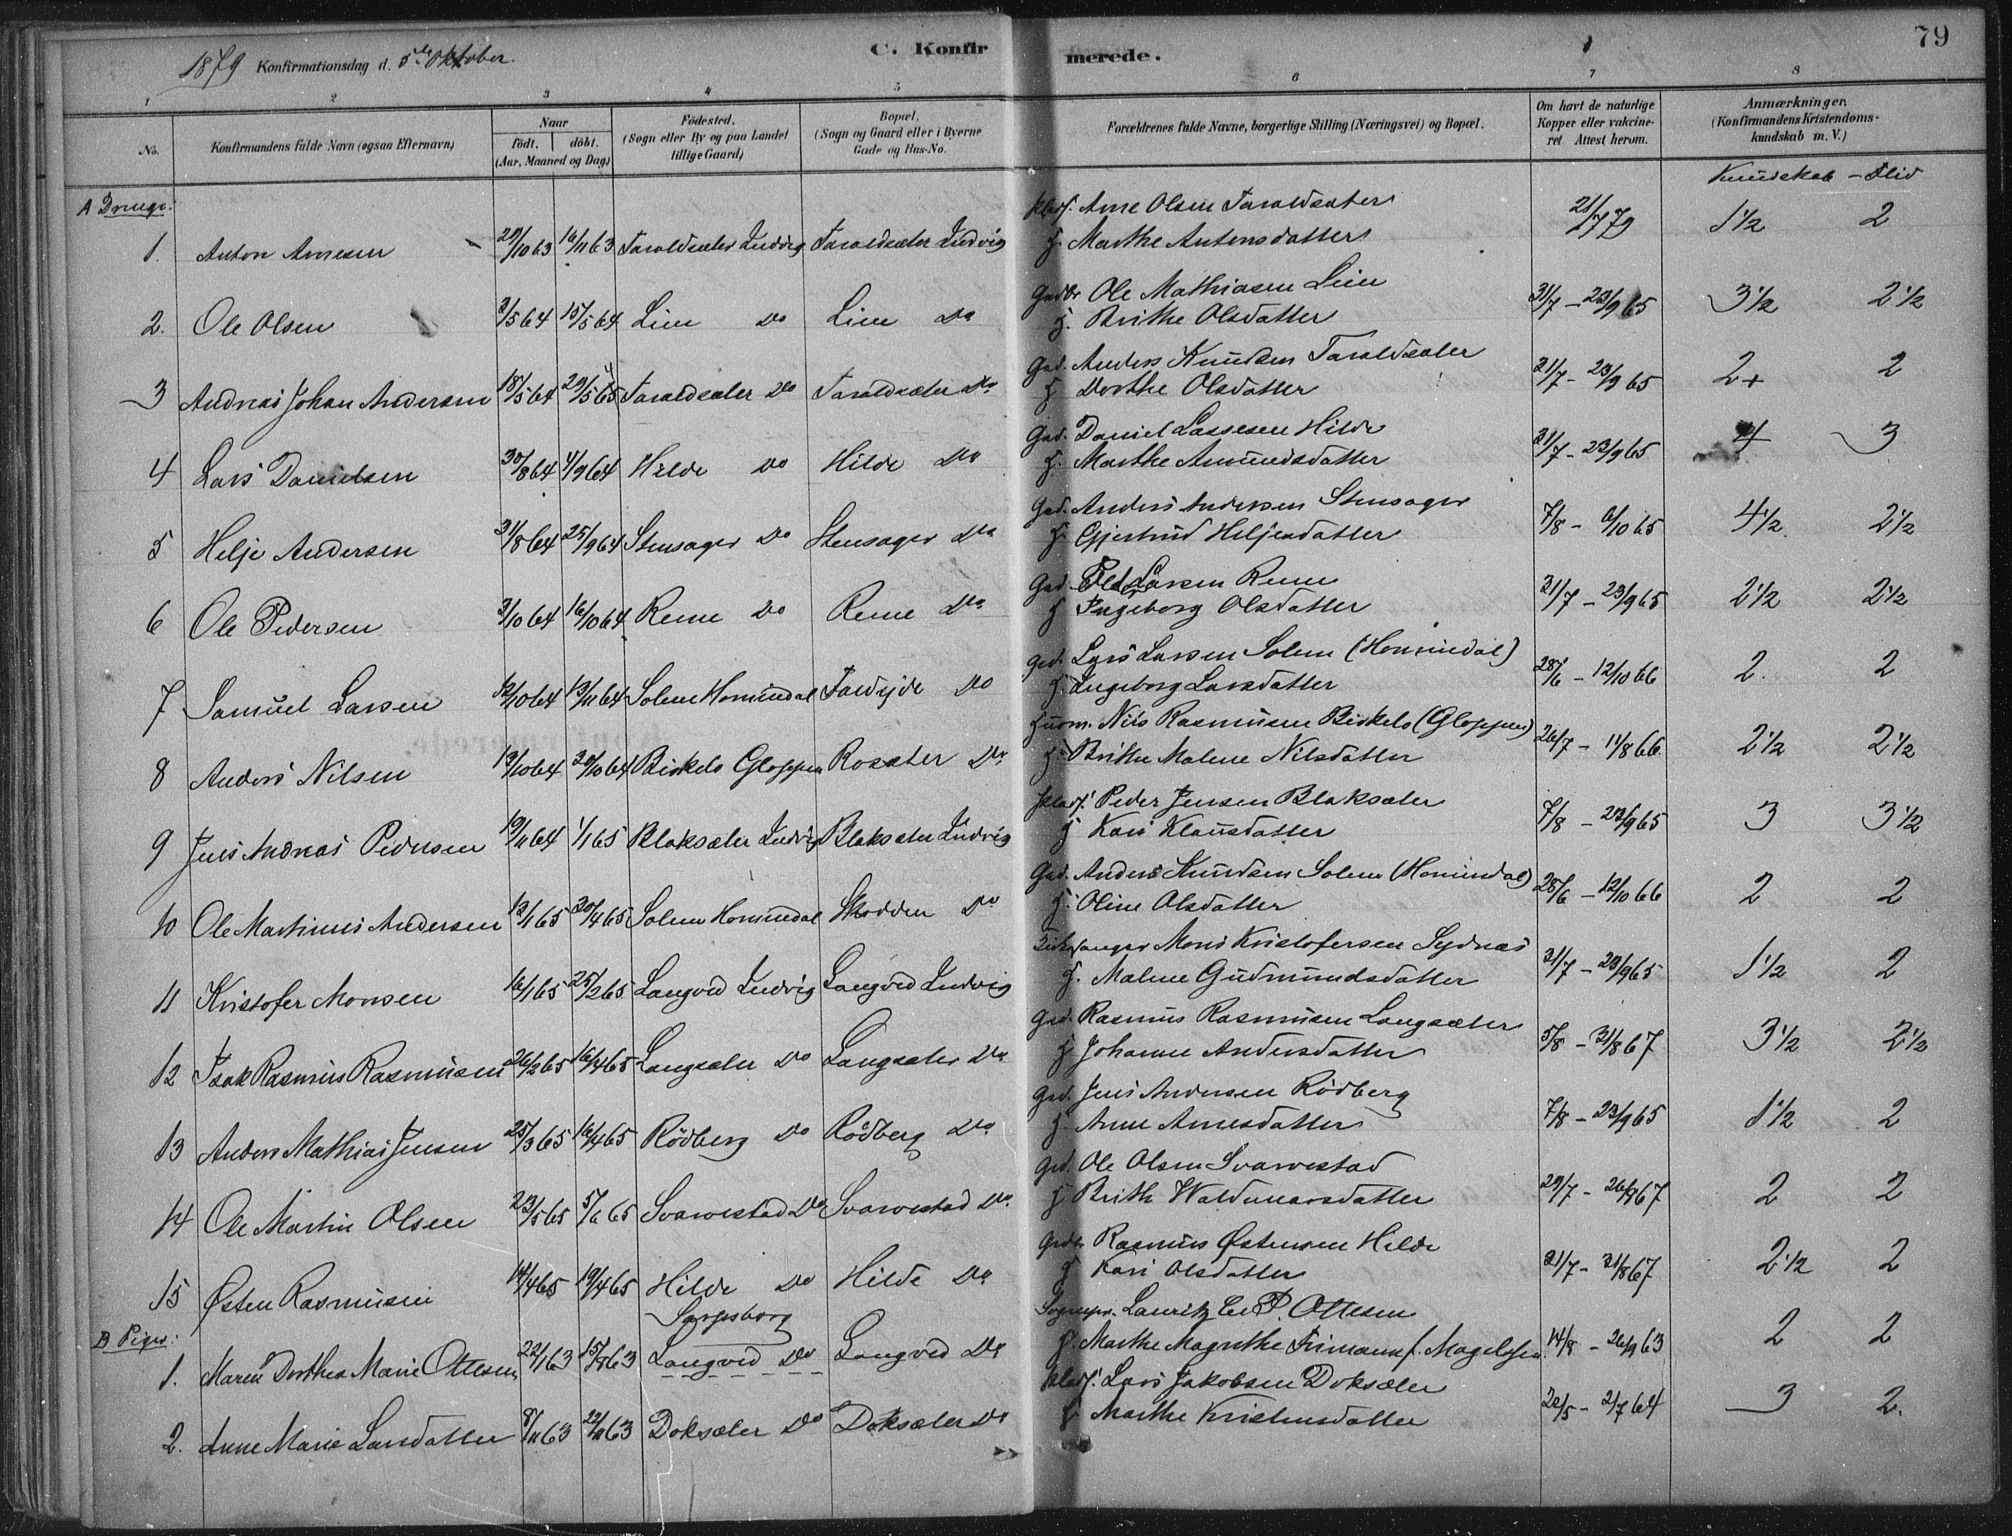 79
1879 Konfirmationsdag d. 5te Oktober. C. Konfirmerede.
1 2 3 4 5 6 7 8
No. Konfirmandens fulde Navn (ogsaa Efternavn) Naar født. døbt. (Aar, Maaned og Dag) Fødested. (Sogn eller By og paa Landet tillige Gaard) Bopæl. (Sogn og Gaard eller i Byerne Gade og Hus-No. Forældrenes fulde Navne, borgerlige Stilling (Næringsvei) og Bopæl. Om havt de naturlige Kopper eller vakcineret Attest herom. Anmærkninger. (Konfirmandens Kristendomskundskab m. V.)
Kundskab - Flid
A Drenge:
Pladf. Arne Olsen Taraldsæter
1. Anton Arnesen 29/10 63 16/11 63 Taraldsæter Indvig Taraldsæter Indvig H. Marthe Antonsdatter 21/7 79 1 1/2 2
Gadbr Ole Mathiasen Lien
2. Ole Olsen 3/5 64 15/5 64 Lien Do Lien Do H. Brithe Olsdatter 31/7 - 23/9 65 3 1/2 2 1/2
Gad. Anders Knudsen Taraldsæter
3 Andreas Johan Andersen 18/5 64 29/5 65 Taraldsæter Do Taraldsæter Do H Dorthe Olsdatter 31/7 - 23/9 65 2+ 2
Gad. Daniel Lassesen Hilde
4 Lars Danielsen 30/8 64 4/9 64 Hilde Do Hilde Do H. Marthe Amundsdatter 31/7 - 23/9 65 4 3
Gad. Anders Andersen Stensager
5 Helje Andersen 31/8 64 25/9 64 Stensager Do Stensager Do H. Gjertrud Heljesdatter 7/8 - 6/10 65 4 1/2 2 1/2
Gad. Larsen Reme
6 Ole Pedersen 3/10 64 16/10 64 Reme Do Reme Do H Ingeborg Olsdatter 31/7 - 23/9 65 2 1/2 2 1/2
Gad. Lars Larsen Solem (Hornindal)
7 Samuel Larsen 12/10 64 13/11 64 Solem Hornindal Do H. Ingeborg Larsdatter 28/6 - 12/10 66 2 2
Huusm. Nils Rasmusen Birkelo (Gloppen)
8 Anders Nilsen 19/10 64 30/10 64 Birkelo Gloppen Rosæter Do H. Brithe Malene Nilsdatter 26/7 - 11/8 66 2 1/2 2 1/2
Pladf. Peder Jensen Blaksæter
9 Jens Andreas Pedersen 19/11 64 1/1 65 Blaksæter Indvig Blaksæter Indvig H Kari Klausdatter 7/8 - 23/9 65 3 3 1/2
Gad. Anders Knudsen Solem (Hornindal)
10 Ole Martinus Andersen 13/1 65 30/4 65 Solem Hornindal Skodden Do H. Oline Olsdatter 28/6 - 12/10 66 2 2
Kirkesanger Mons Kristofersen Sydnæs
11 Kristofer Monsen 16/1 65 25/2 65 Langved Indvig Langved Indvig H. Malene Gudmundsdatter 31/7 - 23/9 65 1 1/2 2
Gad. Rasmus Rasmusen Langsæter
12 Isak Rasmus Rasmusen 26/2 65 16/4 65 Langsæter Do Langsæter Do H Johanne Andersdatter 5/8 - 31/8 67 3 1/2 2 1/2
Gad. Jens Andersen Rödberg
13 Anders Mathias Jensen 25/3 65 16/4 65 Rödberg Do Rödberg Do H. Anne Arnesdatter 7/8 - 23/9 65 1 1/2 2
Gad. Ole Olsen Svarvestad
14 Ole Martin Olsen 23/5 65 5/6 65 Svarvestad Do Svarvestad Do H Brithe Waldemarsdatter 29/7 - 26/9 67 2 2
Gadbr. Rasmus Østensen Hilde
15 Østen Rasmusen 14/4 65 19/4 65 Hilde Do Hilde Do H Kari Olsdatter 31/7 - 31/8 67 2 1/2 2
B Piger: Sarpsborg Sognepr. Lauritz Ottesen
1. Maren Dorthea Marie Ottesen 22/1 63 63 Langved Do Langved Do H. Marthe Magrethe Frimann f. Magelssen 14/8 - 26/9 63 2 2
Pladf. Lars Jakobsen Doksæter
2. Anne Marie Larsdatter 8/11 63 22/11 63 Doksæter Do Doksæter Do H. Marthe Kristensdatter 20/5 - 2/7 64 3 2.